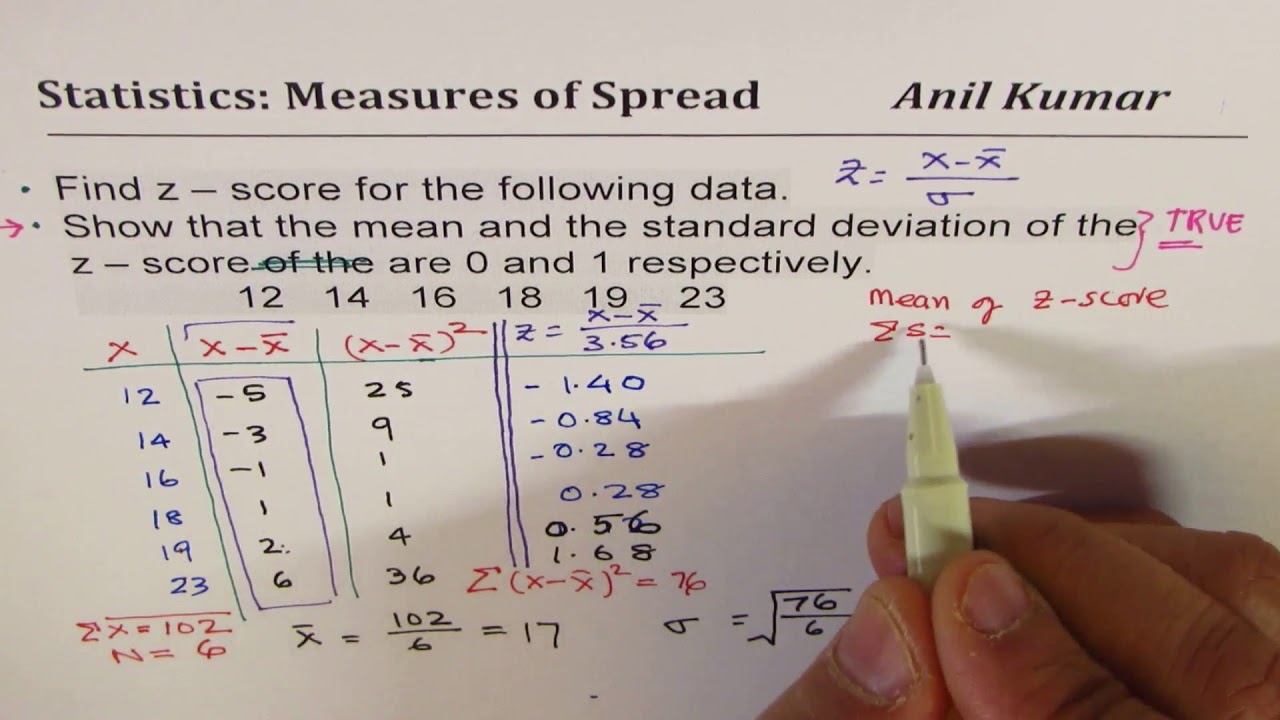 Statistics: Measures of Spread Anil Kumar
• Find z – score for the following data. z = x - x̄ / σ
→ • Show that the mean and the standard deviation of the } TRUE
z – score of the are 0 and 1 respectively.
12 14 16 18 19 23
mean of z-score
Σs=
x | x - x̄ | (x - x̄)² || z = x - x̄ / 3.56
12 -5 25 - 1.40
14 -3 9 - 0.84
16 -1 1 - 0.28
18 1 1 0.28
19 2. 4 0.56
23 6 36 1.68
Σ(x - x̄)² = 76
Σx = 102
N = 6
x̄ = 102 / 6 = 17
σ = √76 / 6